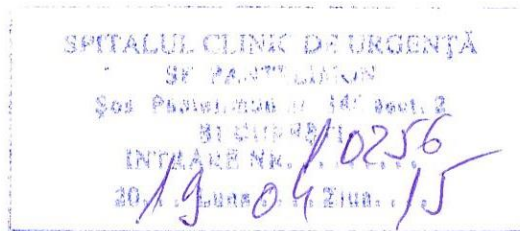 SPITALUL CLINIC DE URGENŢĂ
SF PANTELIMON
Şos Pantelimon sect. 2
BUCUREŞTI
INTRARE NR. 10256
20 19 Luna 04 Ziua 15